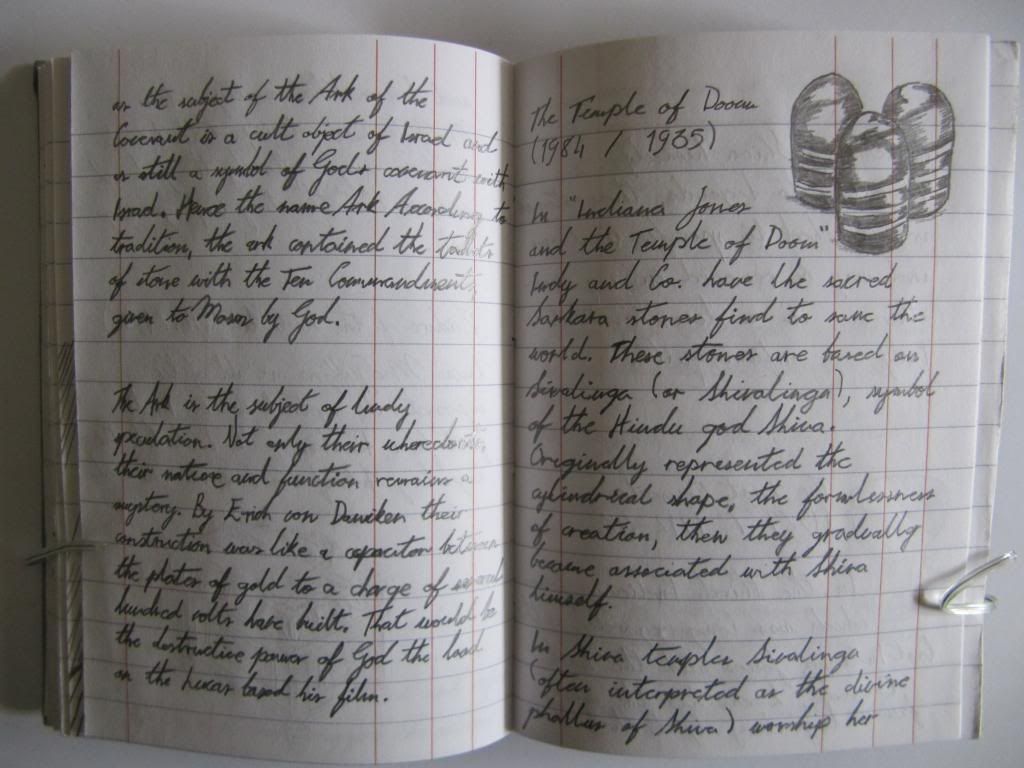 as the subject of the Ark of the
Covenant is a cult object of Israel and
is still a symbol of God's covenant with
Israel. Hence the name Ark According to
tradition, the ark contained the tablets
of stone with the Ten Commandments,
given to Moses by God.
The Ark is the subject of
speculation. Not only their whereabouts,
their nature and function remains a
mystery. By Erich von Daniken their
construction was like a capacitor between
the plates of gold to a charge of several
hundred volts have built. That would be
the destructive power of God the
on the Lucas based his film.
The Temple of Doom
(1984 / 1935)
In "Indiana Jones
and the Temple of Doom"
Indy and Co. have the sacred
Sankara stones find to save the
world. These stones are based on
Sivalinga (or Shivalinga), symbol
of the Hindu god Shiva.
Originally represented the
cylindrical shape, the formlessness
of creation, then they gradually
became associated with Shiva
himself.
In Shiva temples Sivalinga
(often interpreted as the divine
phallus of Shiva) worship her